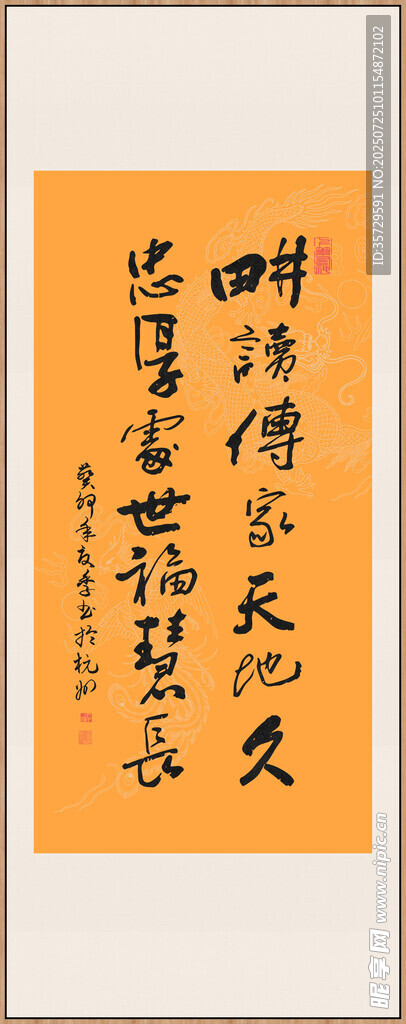 畊讀傳家天地久
忠厚處世福慧長
癸卯年夏季书於杭州
ID:35729591 NO:20250725101154872102
昵享网 www.nipic.cn